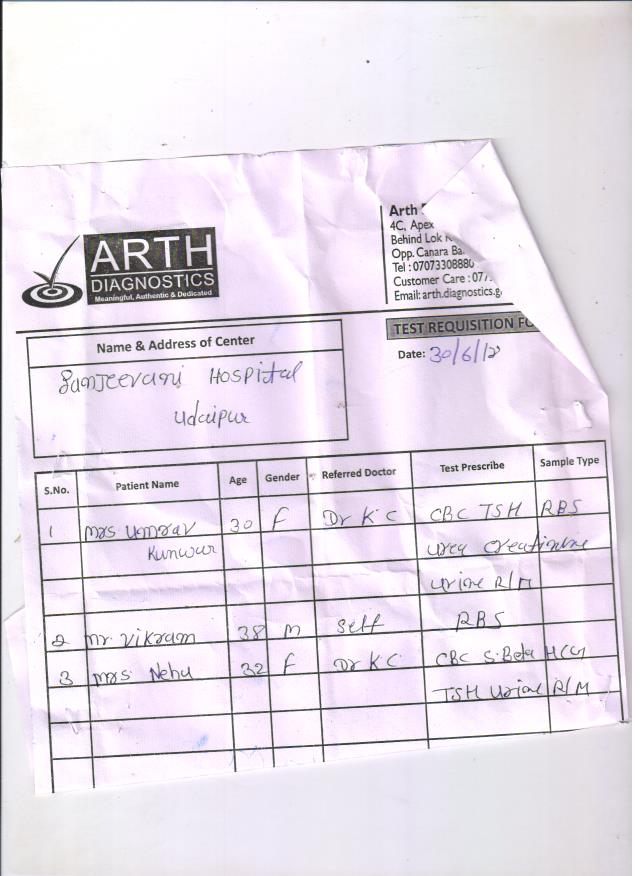 ARTH
DIAGNOSTICS
Meaningful, Authentic & Dedicated
Arth
4C, Apex
Behind Lok
Opp. Canara Ba
Tel : 07073308880
Customer Care : 077
Email: arth.diagnostics.g
TEST REQUISITION FO
Date: 30/6/18
Name & Address of Center
Sanjeevani HOSPItal
Udaipur
S.No. Patient Name Age Gender Referred Doctor Test Prescribe Sample Type
1 Mrs Umrav 30 F Dr K C CBC TSH RBS
Kunwar Urea Creatinine
Urine R/M
2 Mr. Vikram 38 M Self RBS
3 Mrs Neha 32 F Dr K C CBC S.Beta HCG
TSH Urine R/M